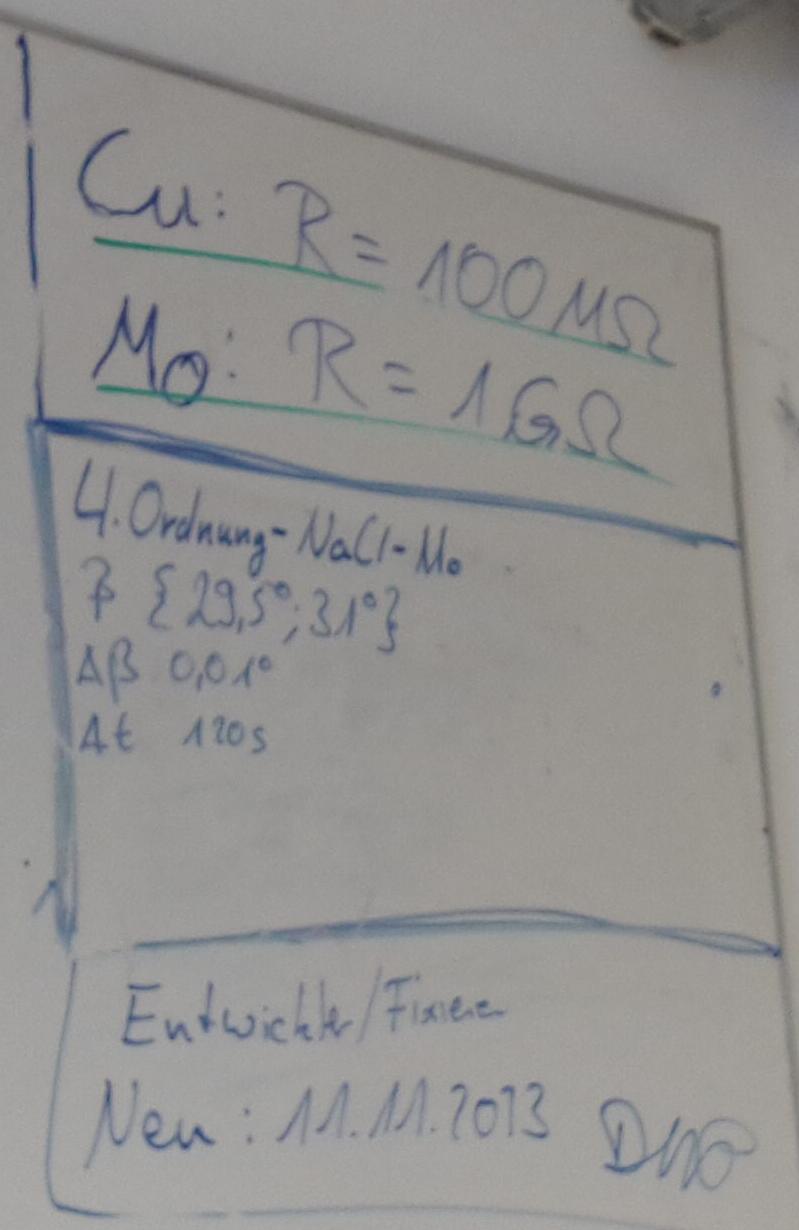 Cu: R = 100 MΩ
Mo: R = 1 GΩ
4. Ordnung - NaCl - Mo
β {29,5°; 31°}
Δβ 0,01°
Δt 120s
Entwickler/Fixierer
Neu: 11.11.2013